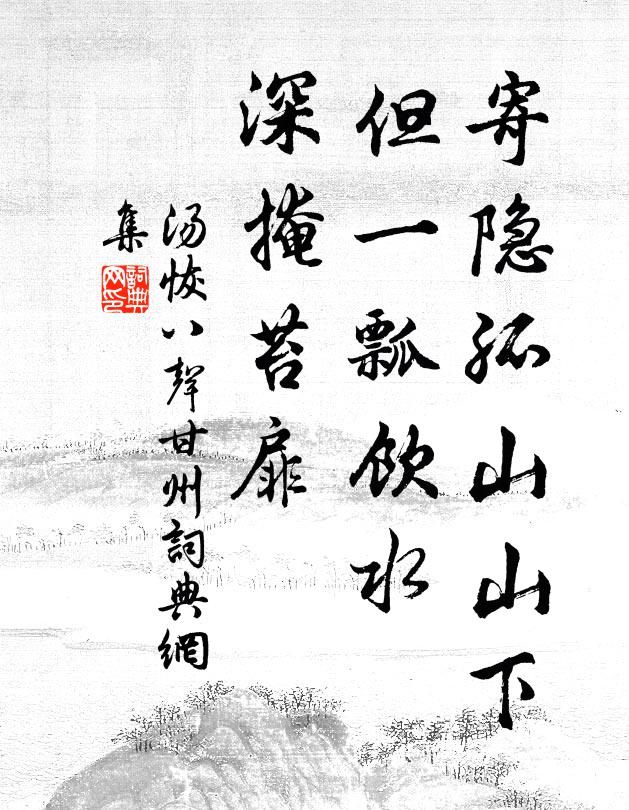 寄隐孤山山下
但一瓢饮水
深掩苔扉
汤恢八聲甘州詞典網
集
詞典
网印